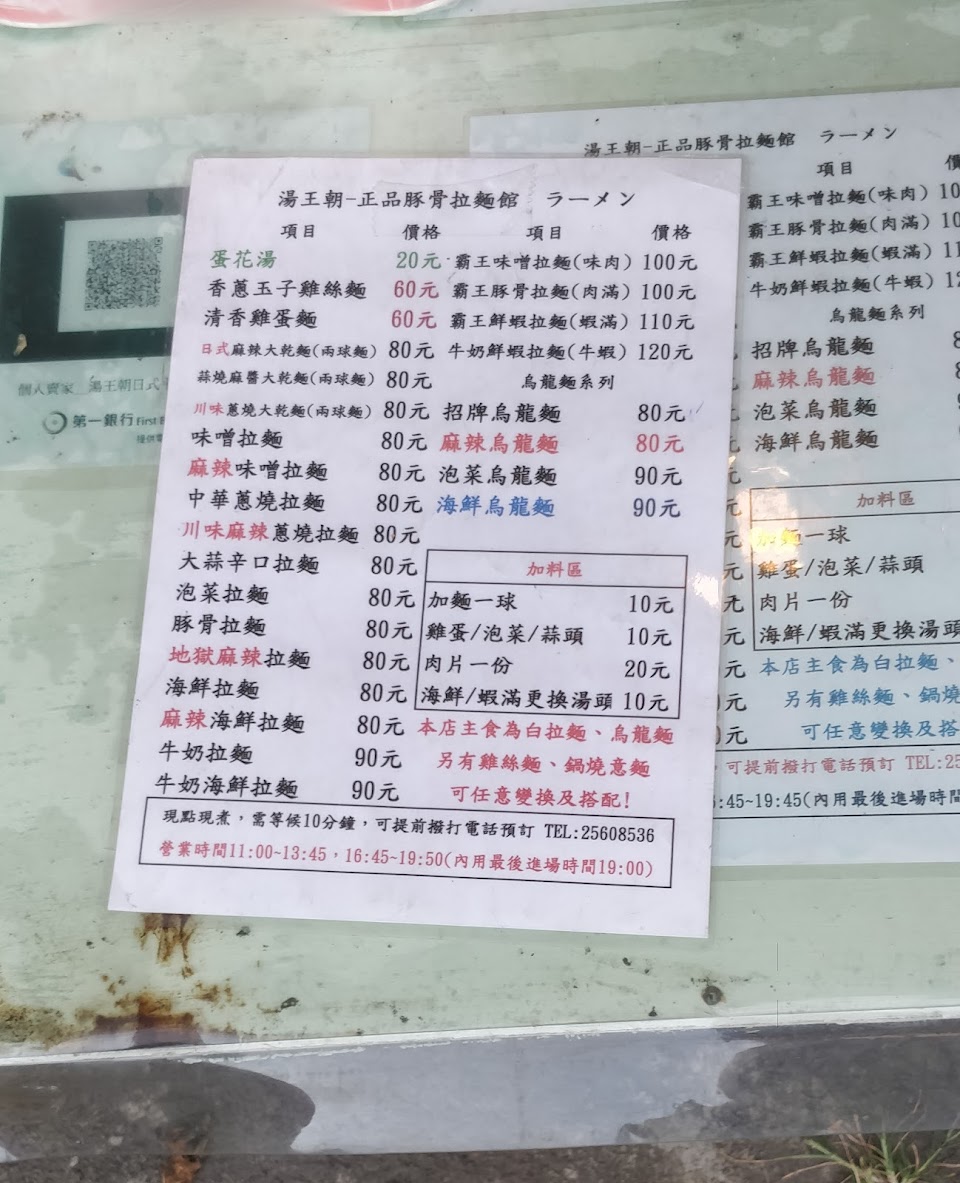 湯王朝-正品豚骨拉麵館 ラーメン
項目 價格 項目 價格
蛋花湯 20元 霸王味噌拉麵(味肉) 100元
香蔥玉子雞絲麵 60元 霸王豚骨拉麵(肉滿) 100元
清香雞蛋麵 60元 霸王鮮蝦拉麵(蝦滿) 110元
日式麻辣大乾麵(兩球麵) 80元 牛奶鮮蝦拉麵(牛蝦) 120元
蒜燒麻醬大乾麵(兩球麵) 80元 烏龍麵系列
川味蔥燒大乾麵(兩球麵) 80元 招牌烏龍麵 80元
味噌拉麵 80元 麻辣烏龍麵 80元
麻辣味噌拉麵 80元 泡菜烏龍麵 90元
中華蔥燒拉麵 80元 海鮮烏龍麵 90元
川味麻辣蔥燒拉麵 80元
大蒜辛口拉麵 80元
泡菜拉麵 80元
豚骨拉麵 80元
地獄麻辣拉麵 80元
海鮮拉麵 80元
麻辣海鮮拉麵 80元
牛奶拉麵 90元
牛奶海鮮拉麵 90元
加料區
加麵一球 10元
雞蛋/泡菜/蒜頭 10元
肉片一份 20元
海鮮/蝦滿更換湯頭 10元
本店主食為白拉麵、烏龍麵
另有雞絲麵、鍋燒意麵
可任意變換及搭配!
現點現煮，需等候10分鐘，可提前撥打電話預訂 TEL:25608536
營業時間11:00~13:45，16:45~19:50(內用最後進場時間19:00)
湯王朝-正品豚骨拉麵館 ラーメン
項目 價
霸王味噌拉麵(味肉) 10
霸王豚骨拉麵(肉滿) 10
霸王鮮蝦拉麵(蝦滿) 11
牛奶鮮蝦拉麵(牛蝦) 12
烏龍麵系列
招牌烏龍麵 8
麻辣烏龍麵
泡菜烏龍麵
海鮮烏龍麵
加料區
加麵一球
雞蛋/泡菜/蒜頭
肉片一份
海鮮/蝦滿更換湯頭
本店主食為白拉麵、
另有雞絲麵、鍋燒
可任意變換及搭
可提前撥打電話預訂 TEL:25
:45~19:45(內用最後進場時間
個人賣家__湯王朝日式
第一銀行 First